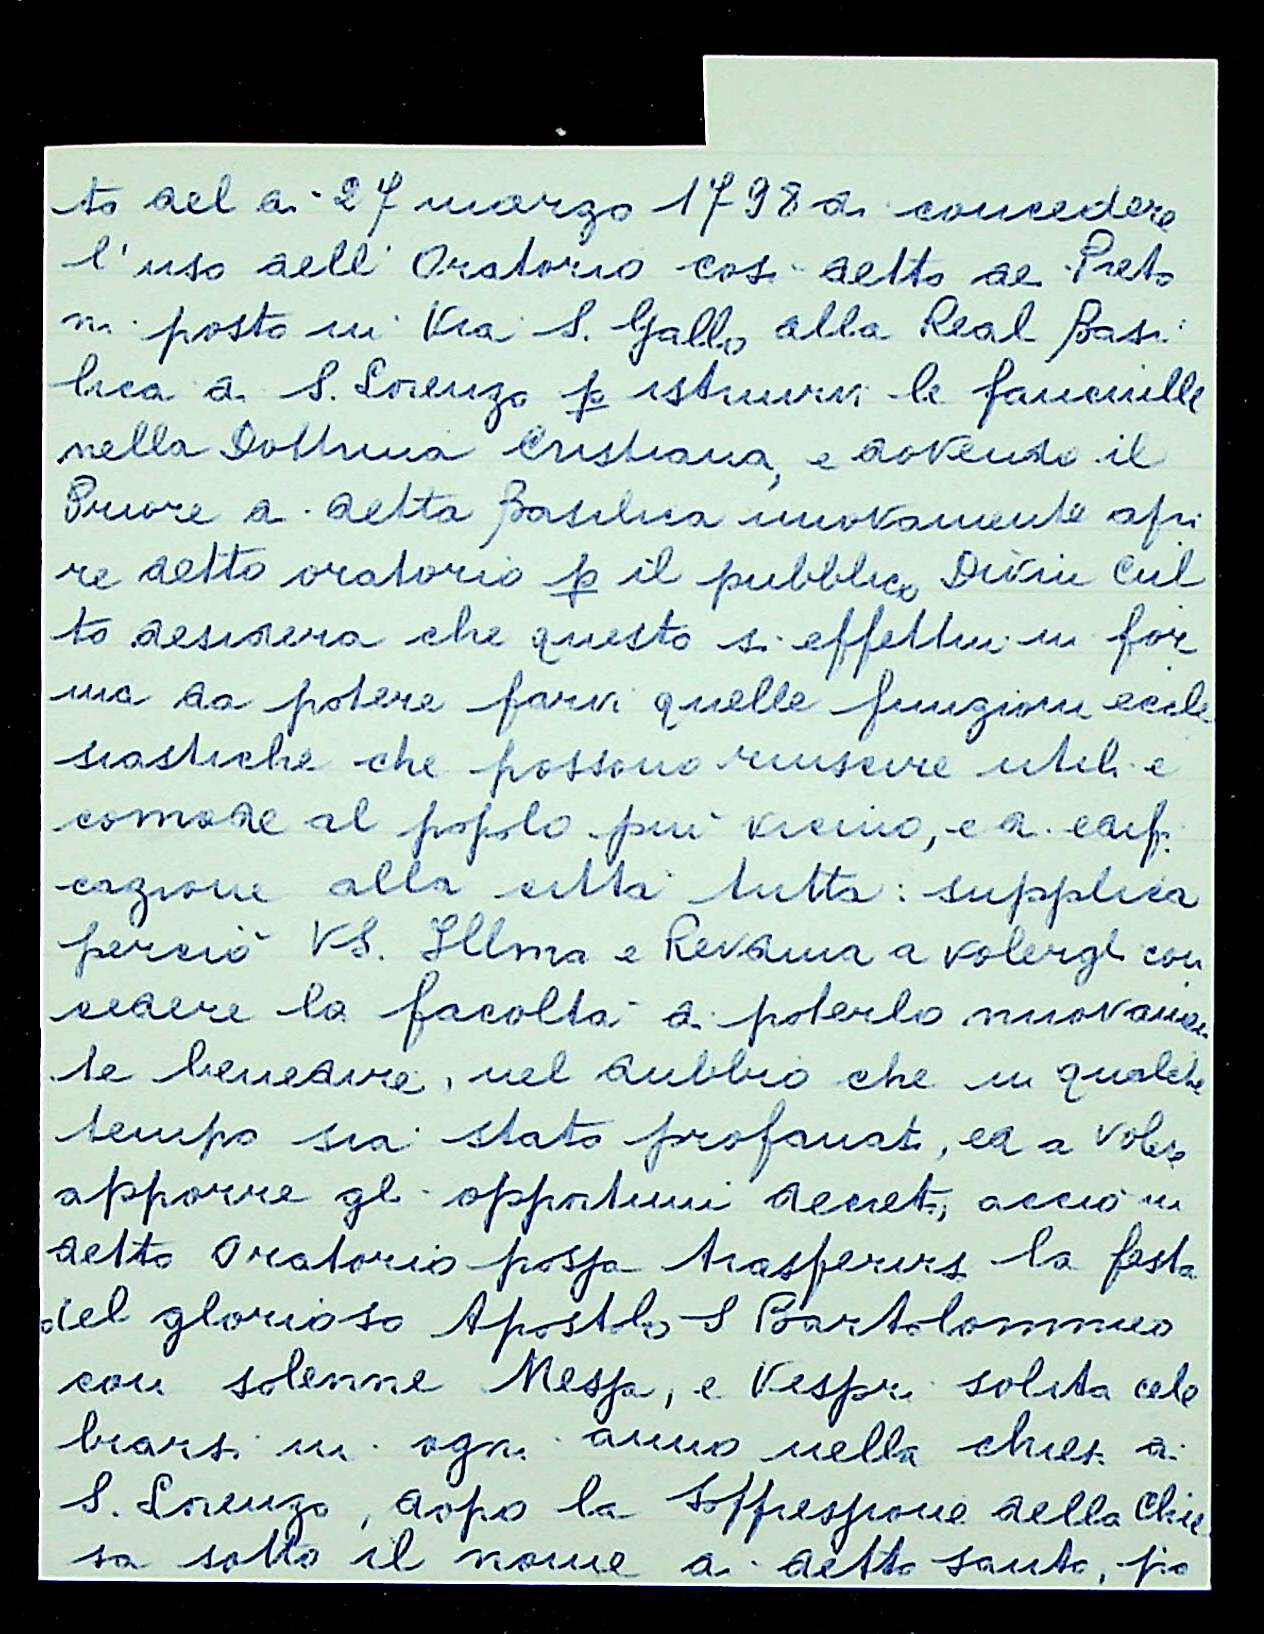 to del dì 27 marzo 1798 di concedere
l'uso dell' Oratorio così detto de Preto
ni posto in Via S. Gallo alla Real Basi
lica di S. Lorenzo p istruirvi le fanciulle
nella Dottrina Cristiana, e dovendo il
Priore di detta Basilica nuovamente apri
re detto oratorio p il pubblico Divin Cul
to desidera che questo si effettui in for
ma da potere farvi quelle funzioni eccle
siastiche che possono riuscire utili e
comode al popolo più vicino, e di edifi
cazione alla città tutta: supplica
perciò VS. Illma e Revdma a volergli con
cedere la facoltà di poterlo nuovamen
te benedire, nel dubbio che in qualche
tempo sia stato profanato, ed a voler
apporre gli opportuni decreti, acciò in
detto Oratorio possa trasferirsi la festa
del glorioso Apostolo S Bartolommeo
con solenne Messa, e Vespri solita cele
brarsi in ogni anno nella chiesa di
S. Lorenzo, dopo la Soffressione della Chie
sa sotto il nome di detto santo, po